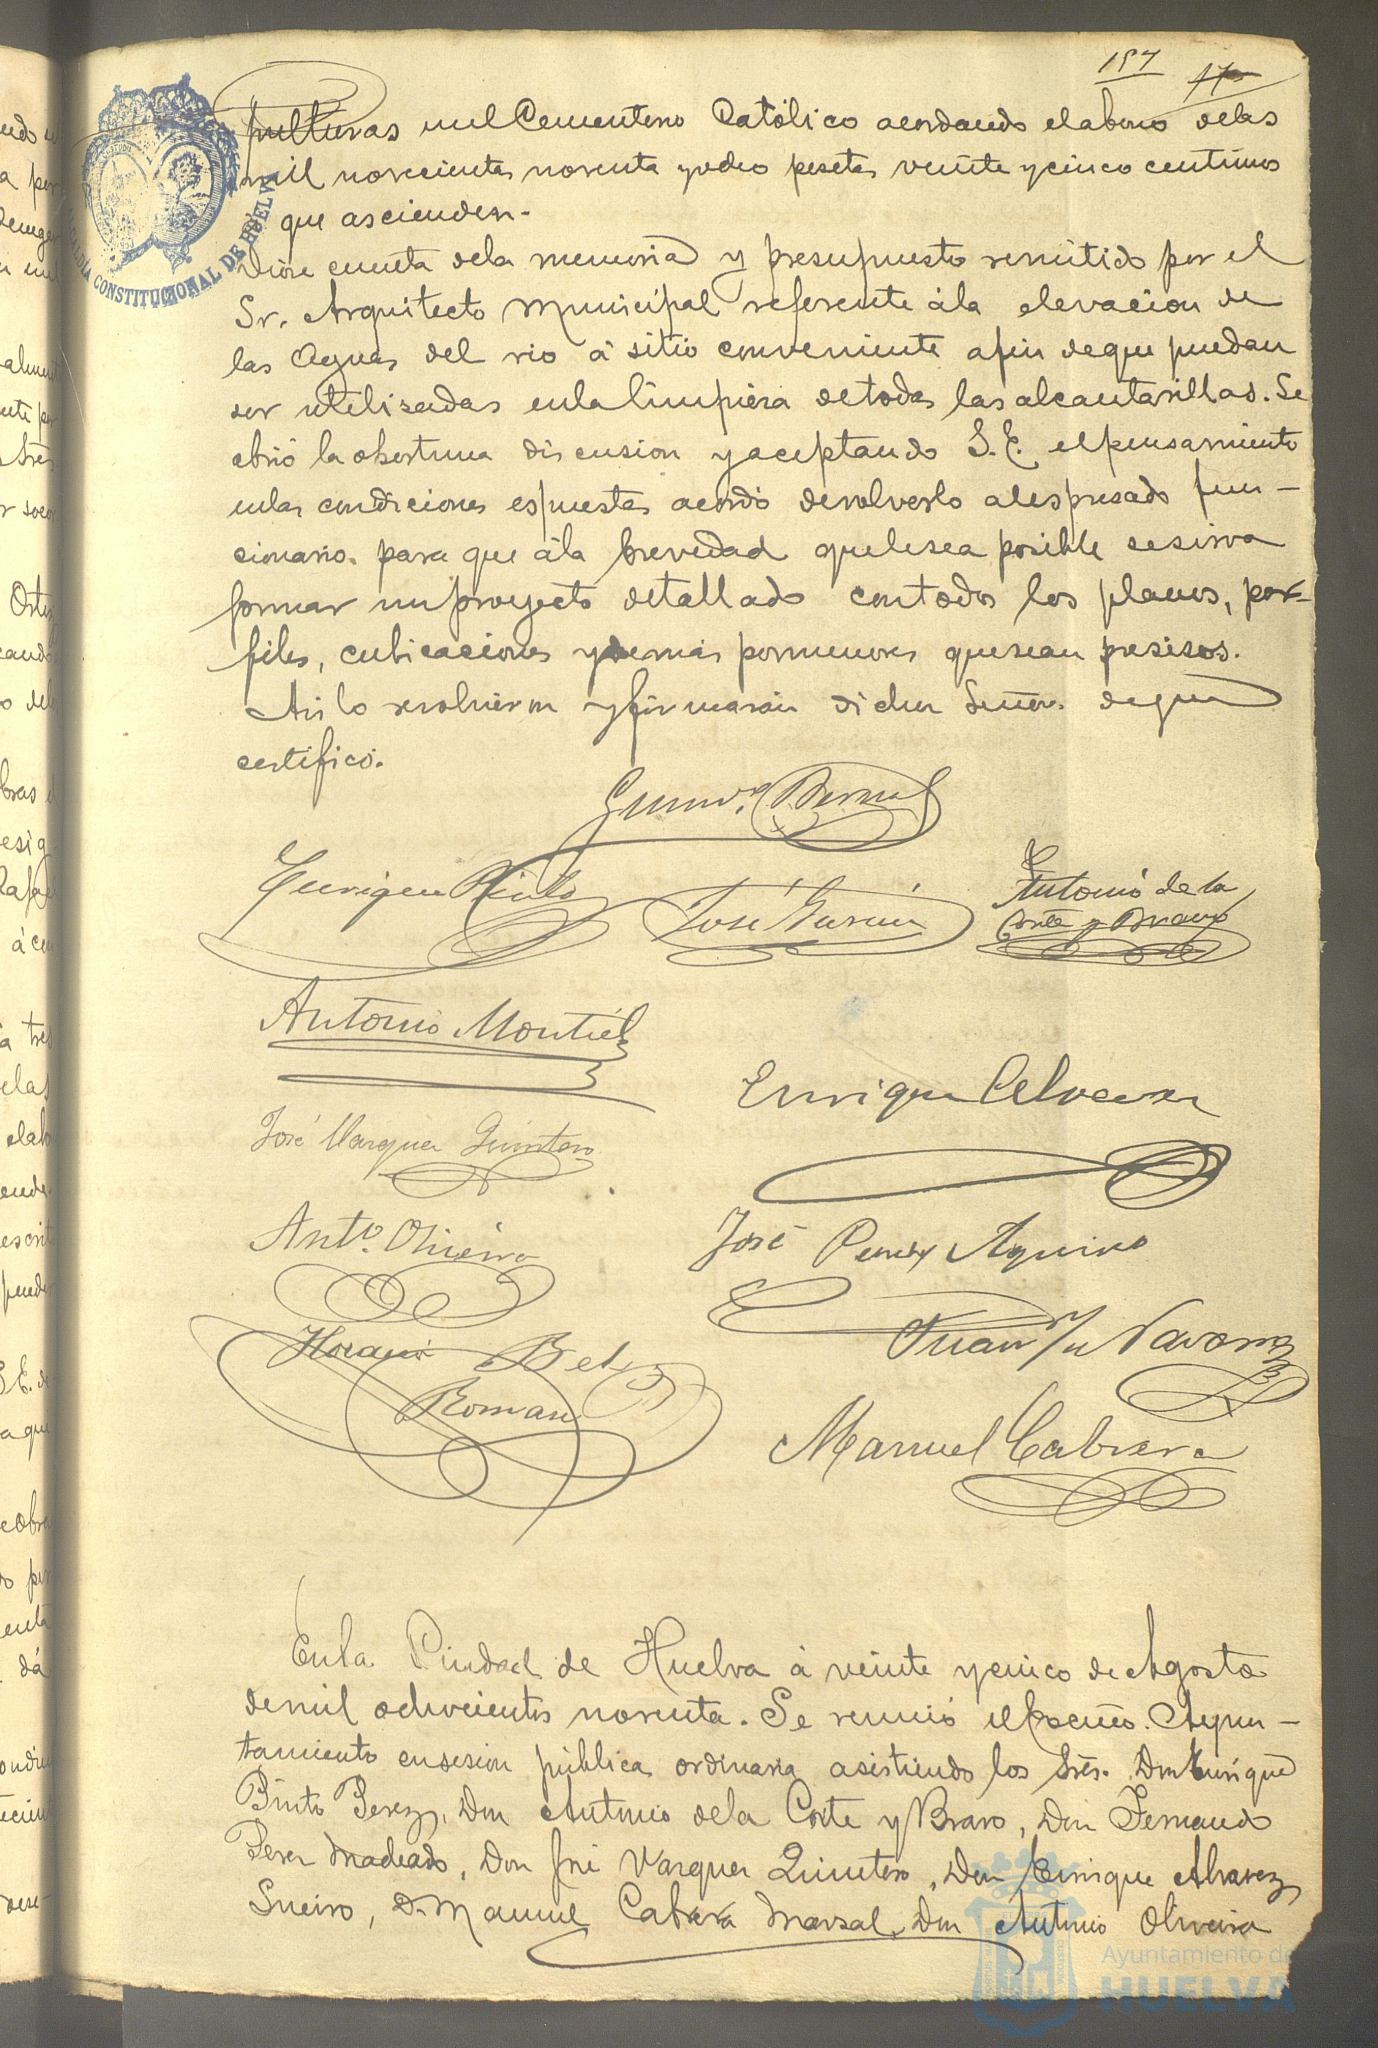 197
pulturas en el Cementerio Católico acordando el abono de las
mil novecientas noventa y dos pesetas veinte y cinco centimos
que ascienden.
ALCALDIA CONSTITUCIONAL DE HUELVA
Diose cuenta de la memoria y presupuesto remitido por el
Sr. Arquitecto Municipal referente á la elevacion de
las Aguas del rio á sitio conveniente a fin de que puedan
ser utilisadas en la limpieza de todas las alcantarillas. Se
abrió la oportuna discusion y aceptando S. E. el pensamiento
en las condiciones espuestas acordó devolverlo al espresado fun-
cionario para que á la brevedad que le sea posible se sirva
formar un proyecto detallado con todos los planos, per-
files, cubicaciones y demas pormenores que sean presisos.
Asi lo resolvieron y firmarán dichos Señores de que
certifico.
Bernal
Enrique Pinto José García Antonio de la
Corte y Bravo
Antonio Montiel
Enrique Alvarez
José Vazquez Quintero
Anto. Oliveira
José Perez Aquino
Horacio Bel
Roman
Juan Navarro
Manuel Cabrera
En la Ciudad de Huelva á veinte y cinco de Agosto
de mil ochocientos noventa. Se reunió el Excmo. Ayun-
tamiento en sesion pública ordinaria asistiendo los Sres. Don Enrique
Pinto Perez, Don Antonio de la Corte y Bravo, Don Fernando
Perez Machado, Don José Vazquez Quintero, Don Enrique Alvarez
Sueiro, D. Manuel Cabrera Marsal, Don Antonio Oliveira
Ayuntamiento de
HUELVA